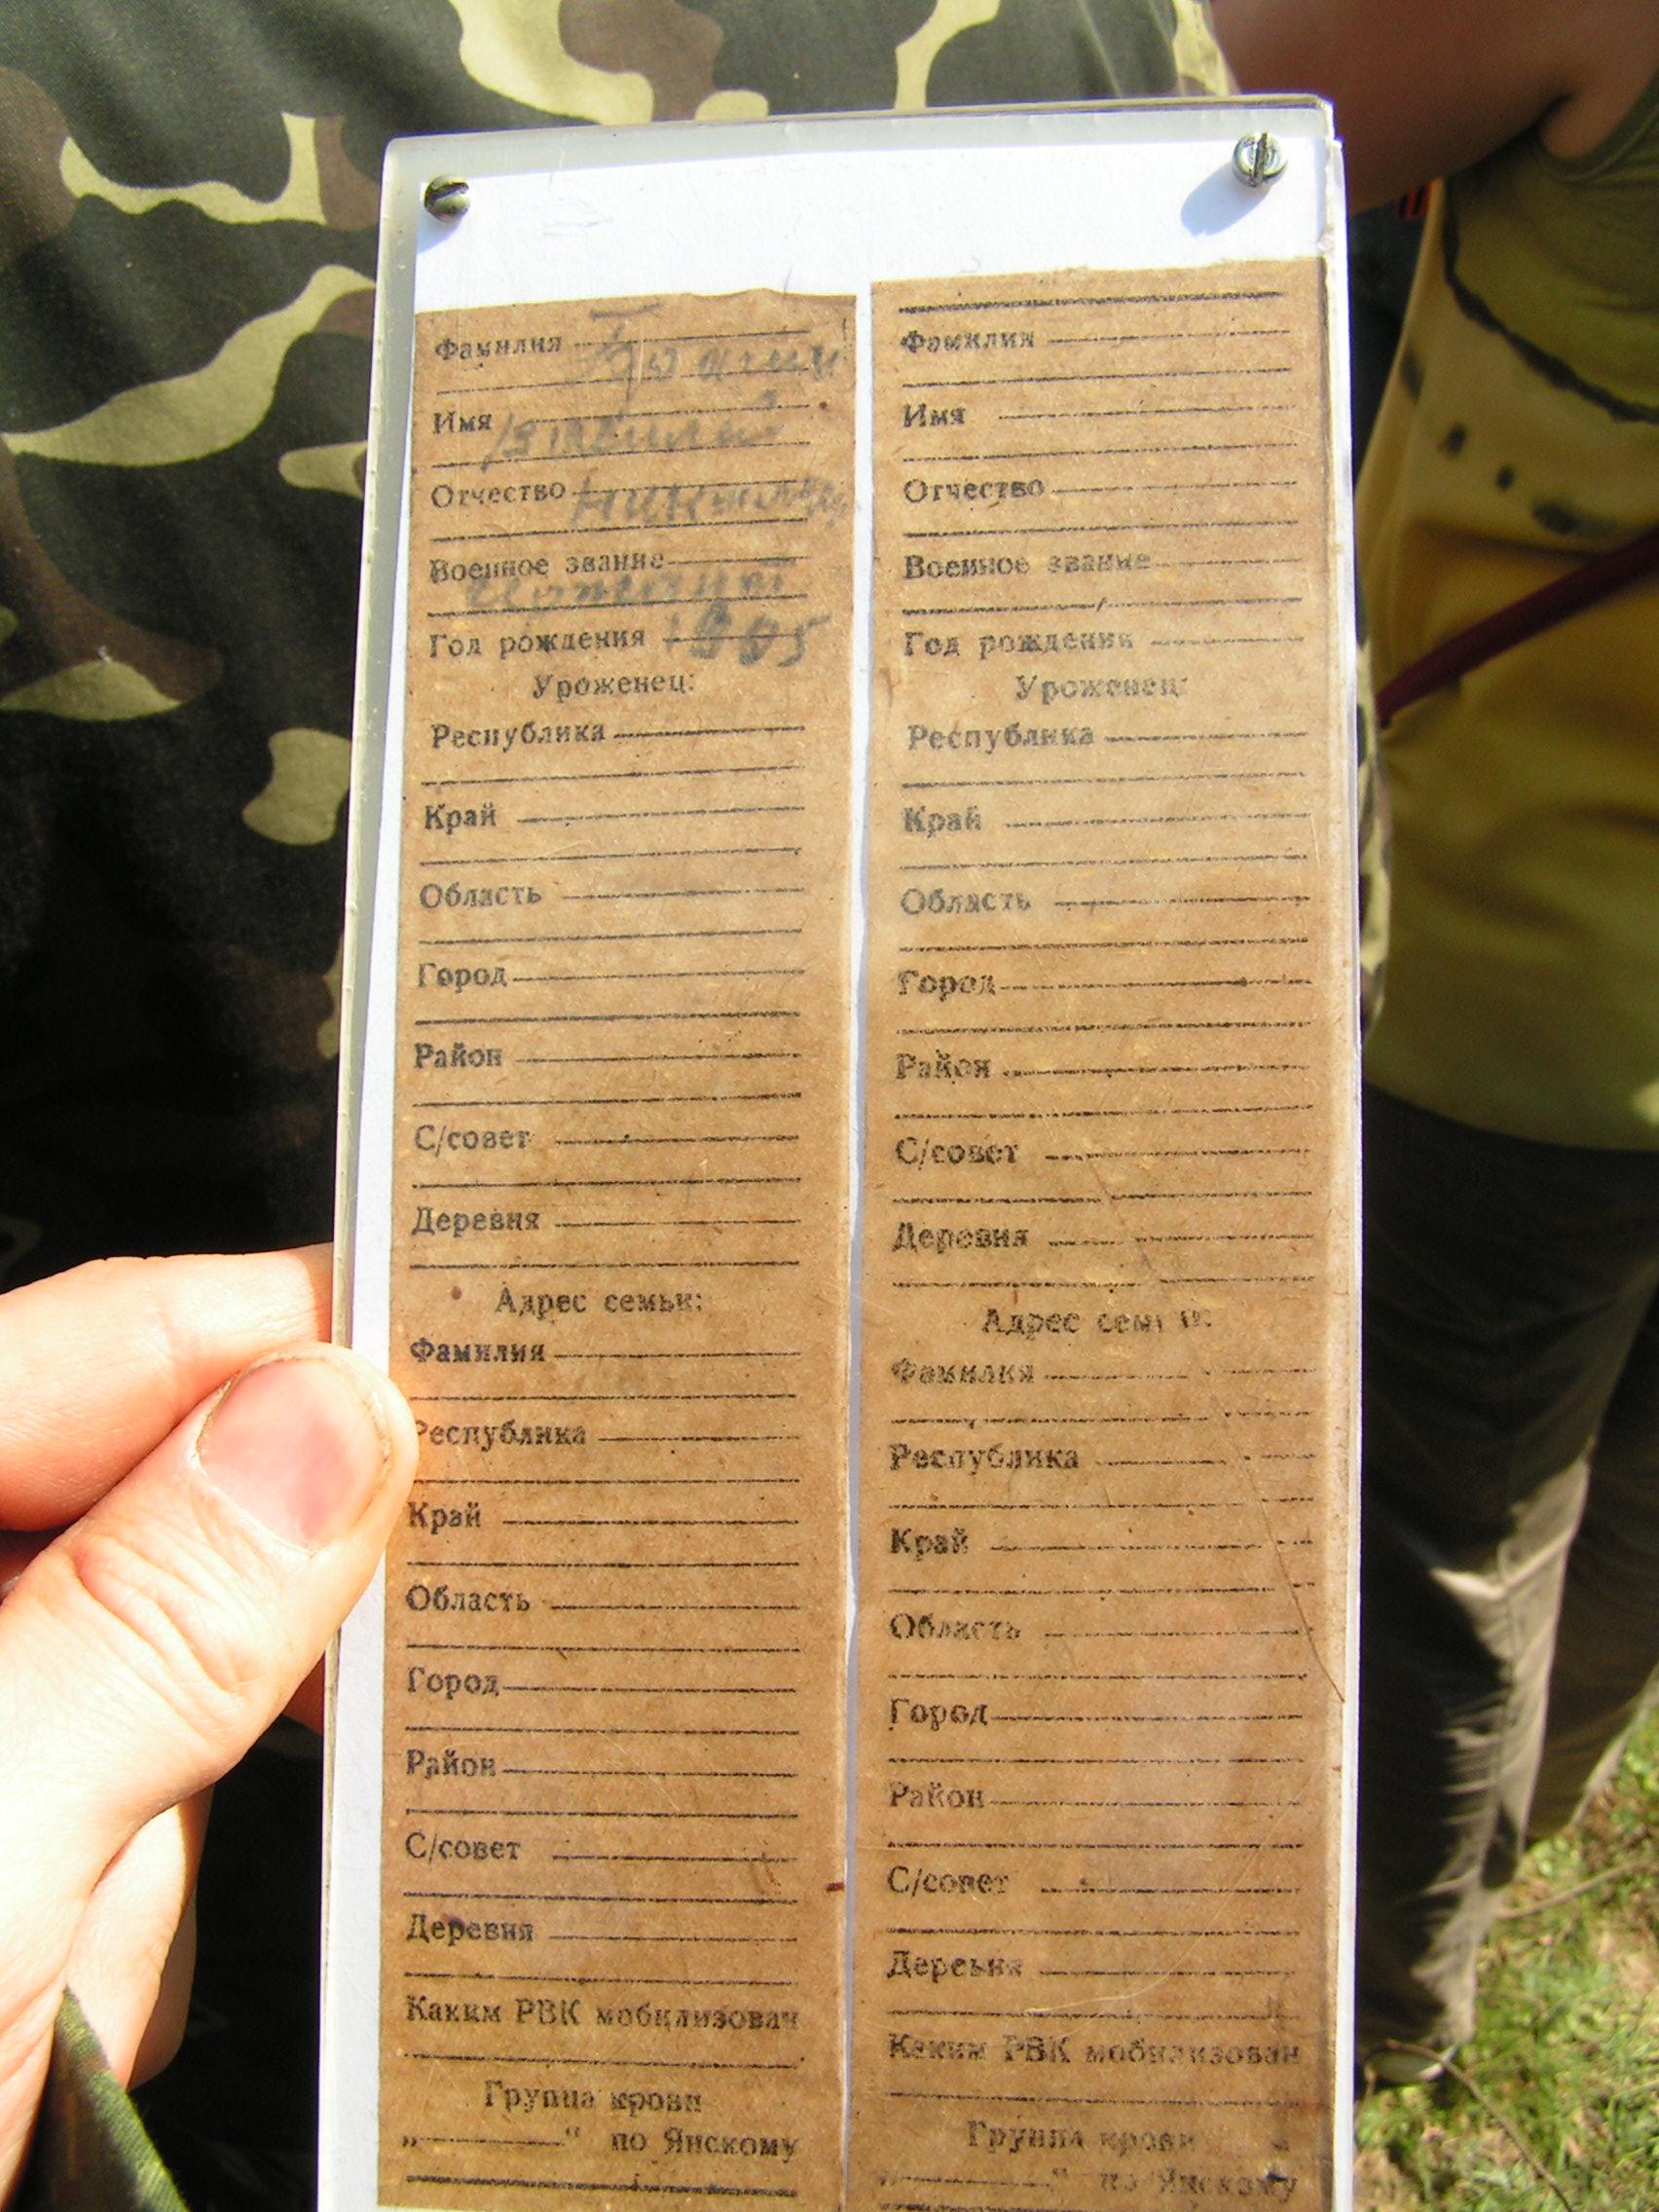 Фамилия
Имя Василий
Отчество
Военное звание
Год рождения 1905
Уроженец:
Республика
Край
Область
Город
Район
С/совет
Деревня
Адрес семьи:
Фамилия
Республика
Край
Область
Город
Район
С/совет
Деревня
Каким РВК мобилизован
Группа крови
„ “ по Янскому
Фамилия
Имя
Отчество
Военное звание
Год рождения
Уроженец:
Республика
Край
Область
Город
Район
С/совет
Деревня
Адрес семьи:
Фамилия
Республика
Край
Область
Город
Район
С/совет
Деревня
Каким РВК мобилизован
Группа крови
„ “ по Янскому